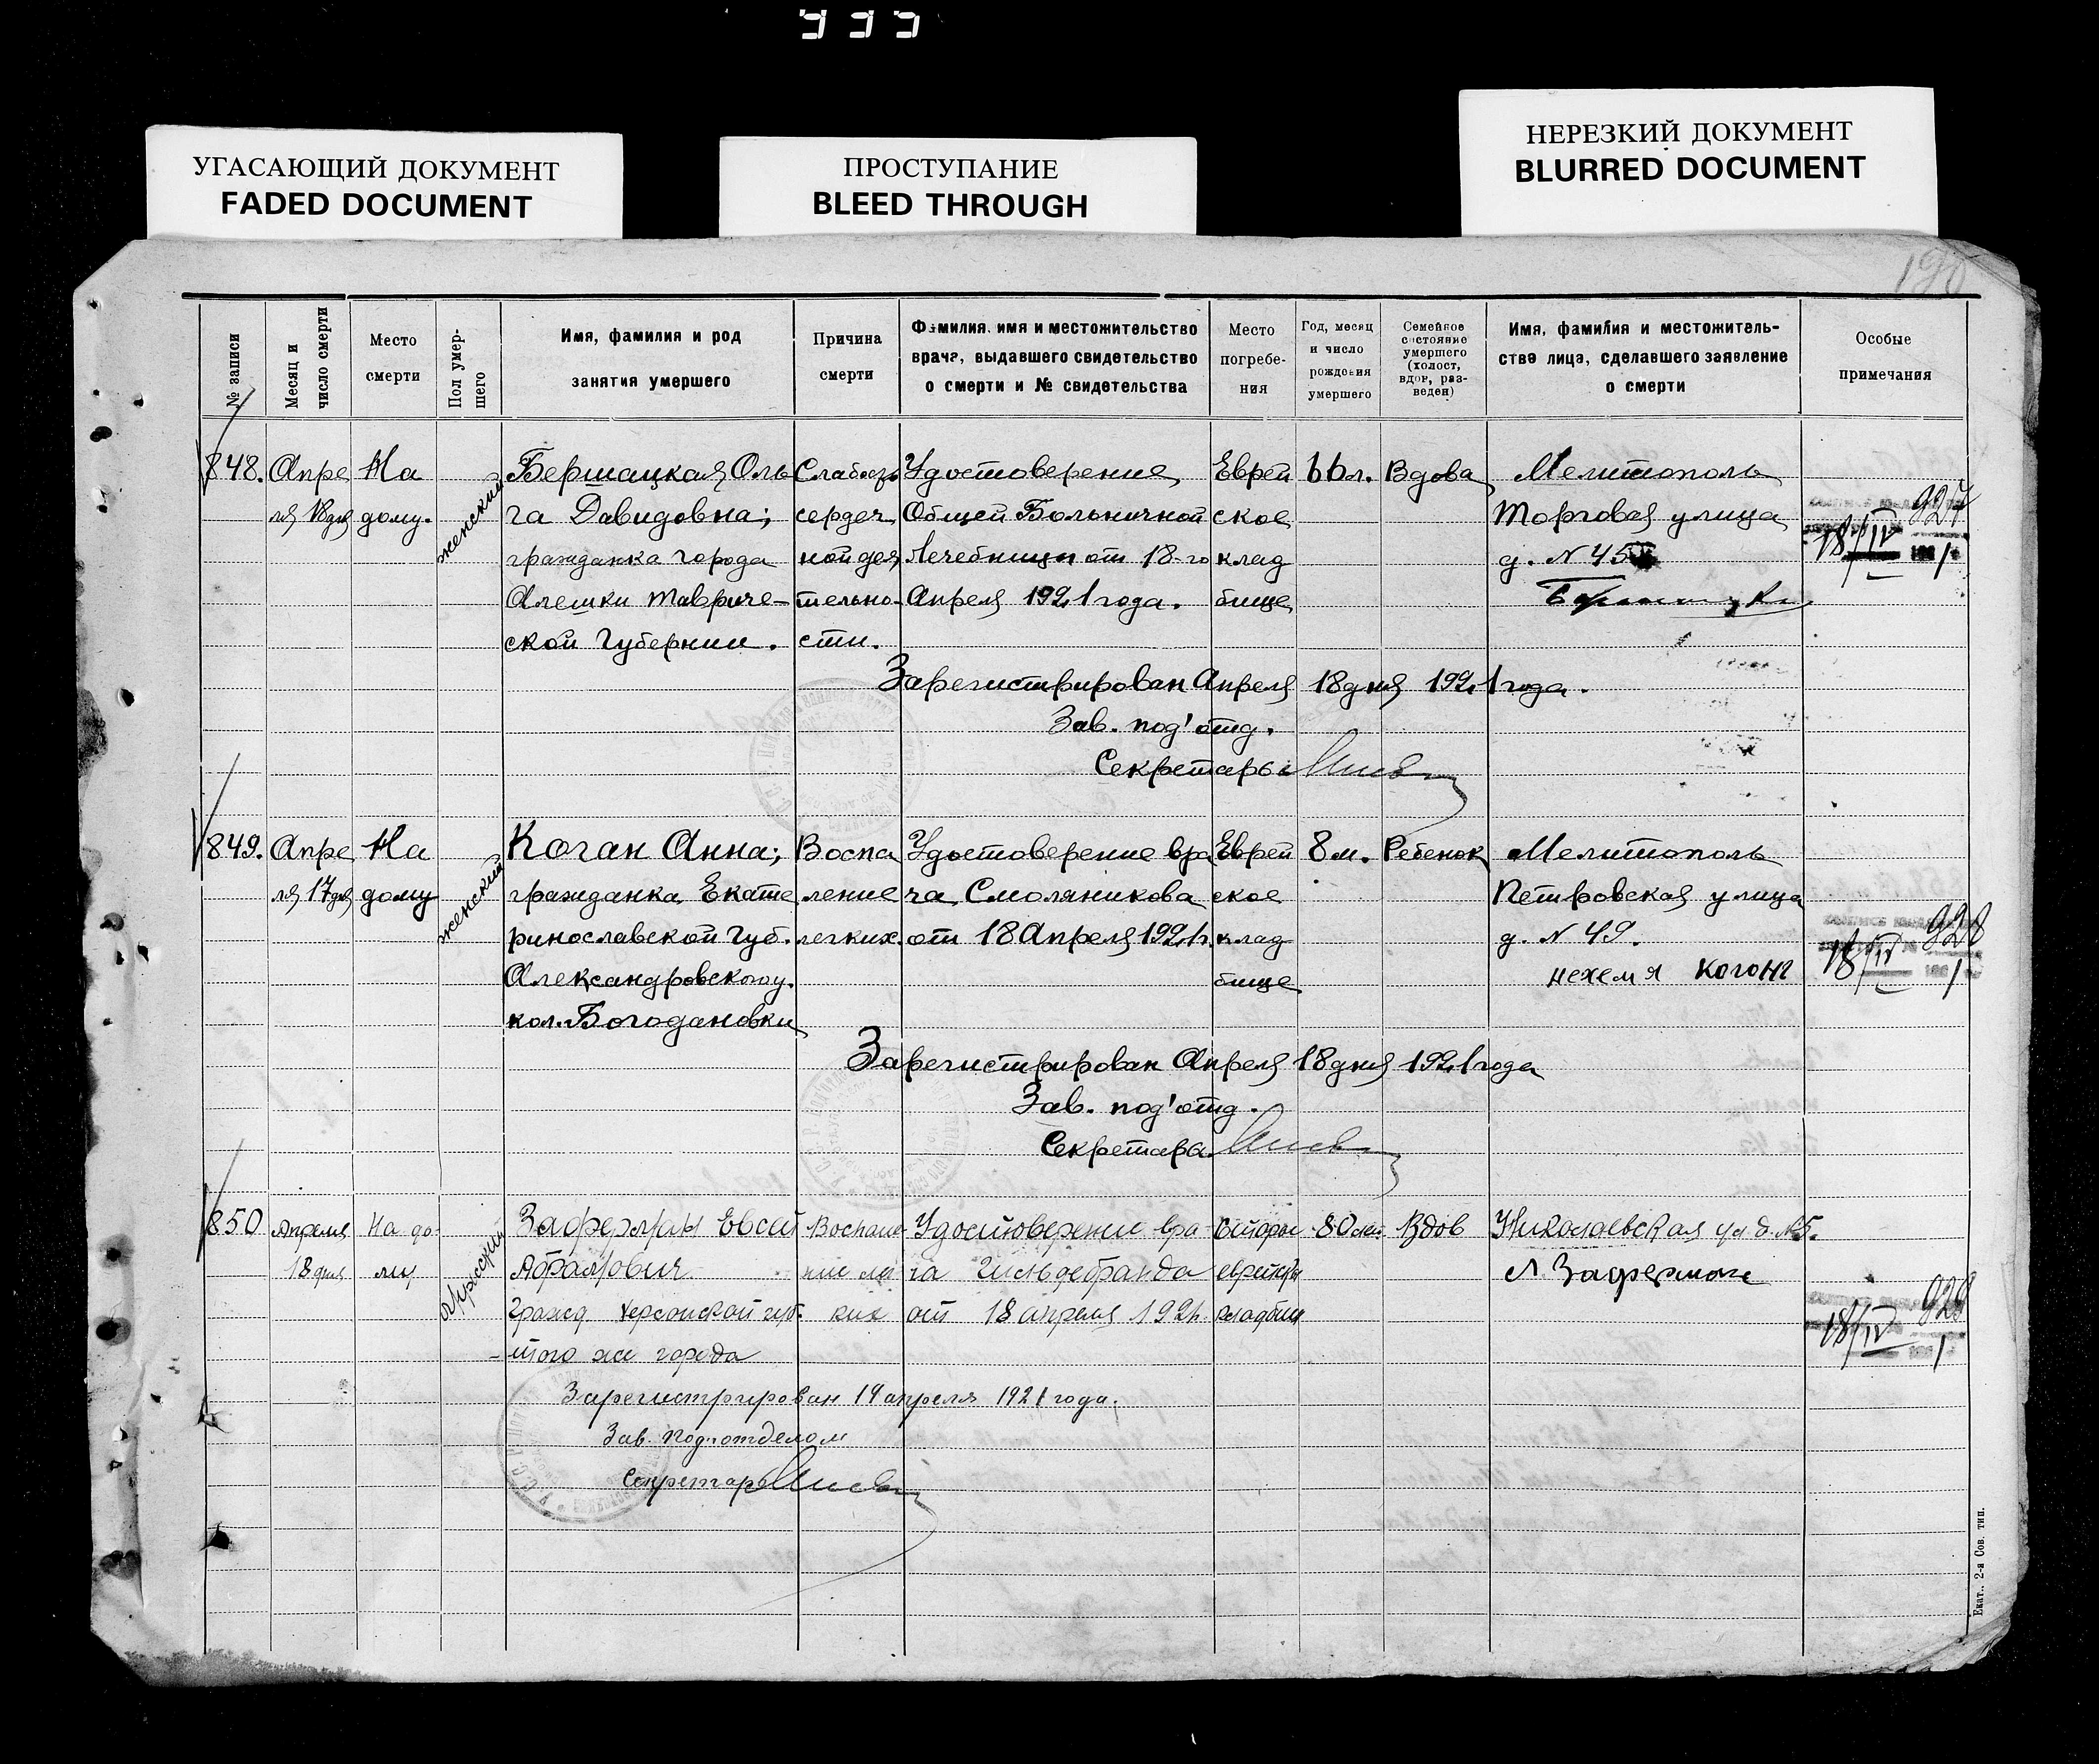 УГАСАЮЩИЙ ДОКУМЕНТ
FADED DOCUMENT
ПРОСТУПАНИЕ
BLEED THROUGH
НЕРЕЗКИЙ ДОКУМЕНТ
BLURRED DOCUMENT
190
№ записи
Месяц и
число смерти
Место
смерти
Пол умер-
шего
Имя, фамилия и род
занятия умершего
Причина
смерти
Фамилия, имя и местожительство
врача, выдавшего свидетельство
о смерти и № свидетельства
Место
погребе-
ния
Год, месяц
и число
рождения
умершего
Семейное
состояние
умершего
(холост,
вдов, раз-
веден)
Имя, фамилия и местожитель-
ство лица, сделавшего заявление
о смерти
Особые
примечания
848.
Апре
ля 18 дня
На
дому.
женский
Бершацкая Оль
га Давидовна;
гражданка города
Алешки Тавриче-
ской Губернии.
Слабость
сердеч
ной дея
тельно-
сти.
Удостоверение
Общей Больничной
Лечебницы от 18-го
Апреля 1921 года.
Еврей
ское
клад
бище
66 л.
Вдова
Мелитополь
Торговая улица
д. № 45
927
18/IV
Зарегистрирован Апреля 18 дня 1921 года.
Зав. под'отд.
Секретарь
849.
Апре
ля 17 дня
На
дому
женский
Коган Анна;
гражданка Екате
ринославской Губ.
Александровского у.
кол. Богодановки
Воспа
ление
легких.
Удостоверение вра
ча Смоляникова
от 18 Апреля 1921 г.
Еврей
ское
клад
бище
8 м.
Ребенок
Мелитополь
Петровская улица
д. № 49.
нехемя Когонг
928
18/IV
Зарегистрирован Апреля 18 дня 1921 года
Зав. под'отд.
Секретарь
850
Апреля
18 дня
На до-
му
мужской
Заферман Евсей
Абрамович
гражд. Херсонской губ.
того же города
Воспале-
ние лег
ких
Удостоверение вра-
ча Гильдебранда
от 18 апреля 1921 г.
еврейское
кладбище
80 лет
Вдов
Николаевская ул д. №5.
Л. Заферман
929
18/IV
Зарегистрирован 19 апреля 1921 года.
Зав. подотделом
Секретарь
Екат.. 2-я Сов. тип.